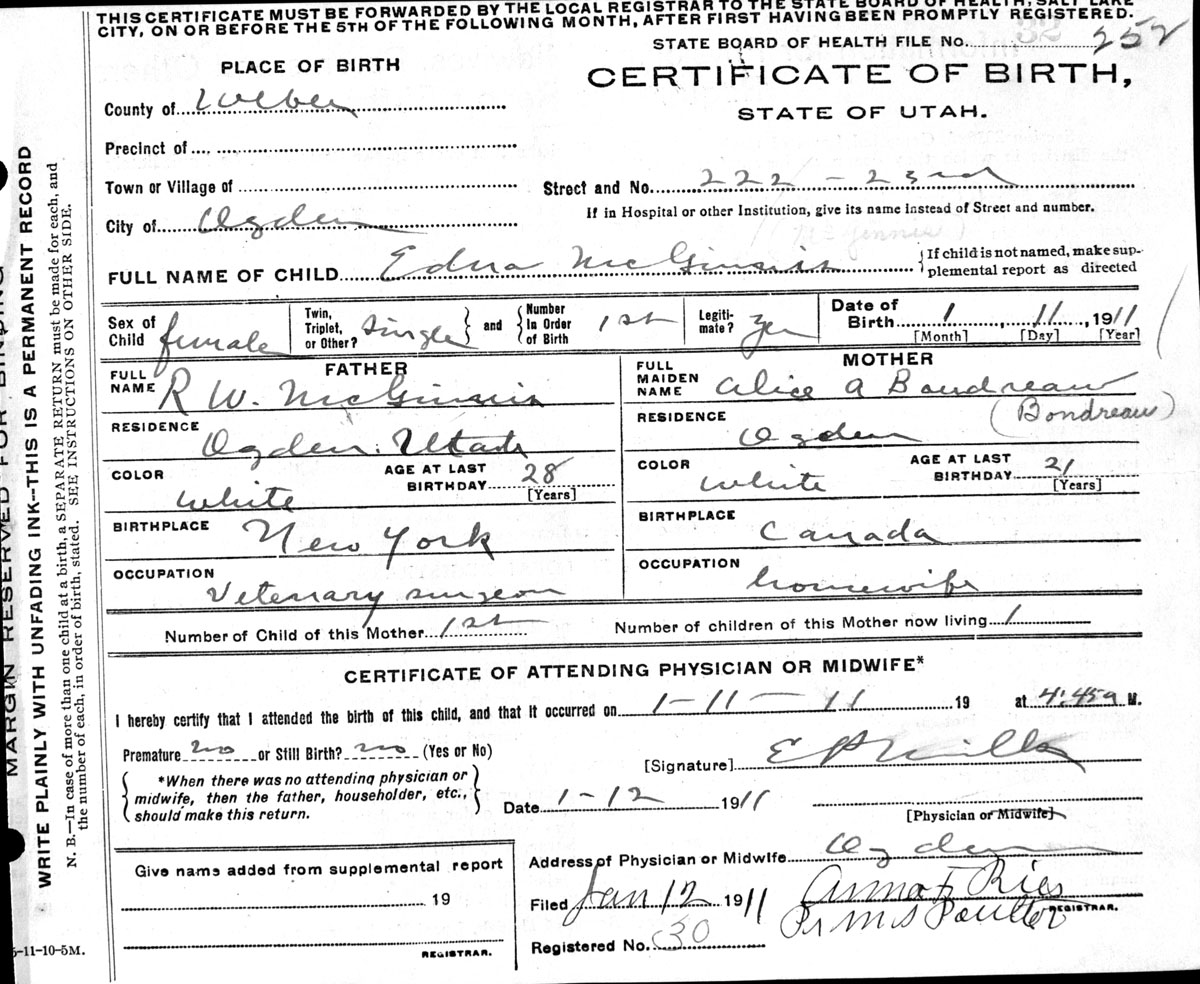 THIS CERTIFICATE MUST BE FORWARDED BY THE LOCAL REGISTRAR TO THE STATE BOARD OF HEALTH, SALT LAKE
CITY, ON OR BEFORE THE 5TH OF THE FOLLOWING MONTH, AFTER FIRST HAVING BEEN PROMPTLY REGISTERED.
STATE BOARD OF HEALTH FILE No. 252
PLACE OF BIRTH
CERTIFICATE OF BIRTH,
STATE OF UTAH.
County of Weber
Precinct of
Town or Village of
Street and No. 222 - 23rd
If in Hospital or other Institution, give its name instead of Street and number.
City of Ogden
FULL NAME OF CHILD Edna McGinnis
If child is not named, make sup-
plemental report as directed
Sex of Child female
Twin, Triplet, or Other? Single
and Number In Order of Birth 1st
Legiti-mate? yes
Date of Birth 1, 11, 1911
[Month] [Day] [Year]
FATHER
MOTHER
FULL NAME R W. McGinnis
FULL MAIDEN NAME Alice A Boudreau
(Bondreau)
RESIDENCE Ogden Utah
RESIDENCE Ogden
COLOR white
AGE AT LAST BIRTHDAY 28 [Years]
COLOR white
AGE AT LAST BIRTHDAY 21 [Years]
BIRTHPLACE New York
BIRTHPLACE Canada
OCCUPATION Vetenary surgeon
OCCUPATION housewife
Number of Child of this Mother 1st
Number of children of this Mother now living 1
CERTIFICATE OF ATTENDING PHYSICIAN OR MIDWIFE*
I hereby certify that I attended the birth of this child, and that it occurred on 1-11-11 19 at 4:45a M.
Premature no or Still Birth? no (Yes or No)
[Signature] E P Mills
*When there was no attending physician or
midwife, then the father, householder, etc.,
should make this return.
Date 1-12 1911
[Physician or Midwife]
Address of Physician or Midwife Ogden
Give name added from supplemental report
19
REGISTRAR.
Filed Jan 12 1911
Anna F Ries
REGISTRAR.
Registered No. 30
MARGIN RESERVED FOR BINDING
WRITE PLAINLY WITH UNFADING INK--THIS IS A PERMANENT RECORD
N. B.—In case of more than one child at a birth, a SEPARATE RETURN must be made for each, and
the number of each, in order of birth, stated. SEE INSTRUCTIONS ON OTHER SIDE.
-11-10-5M.